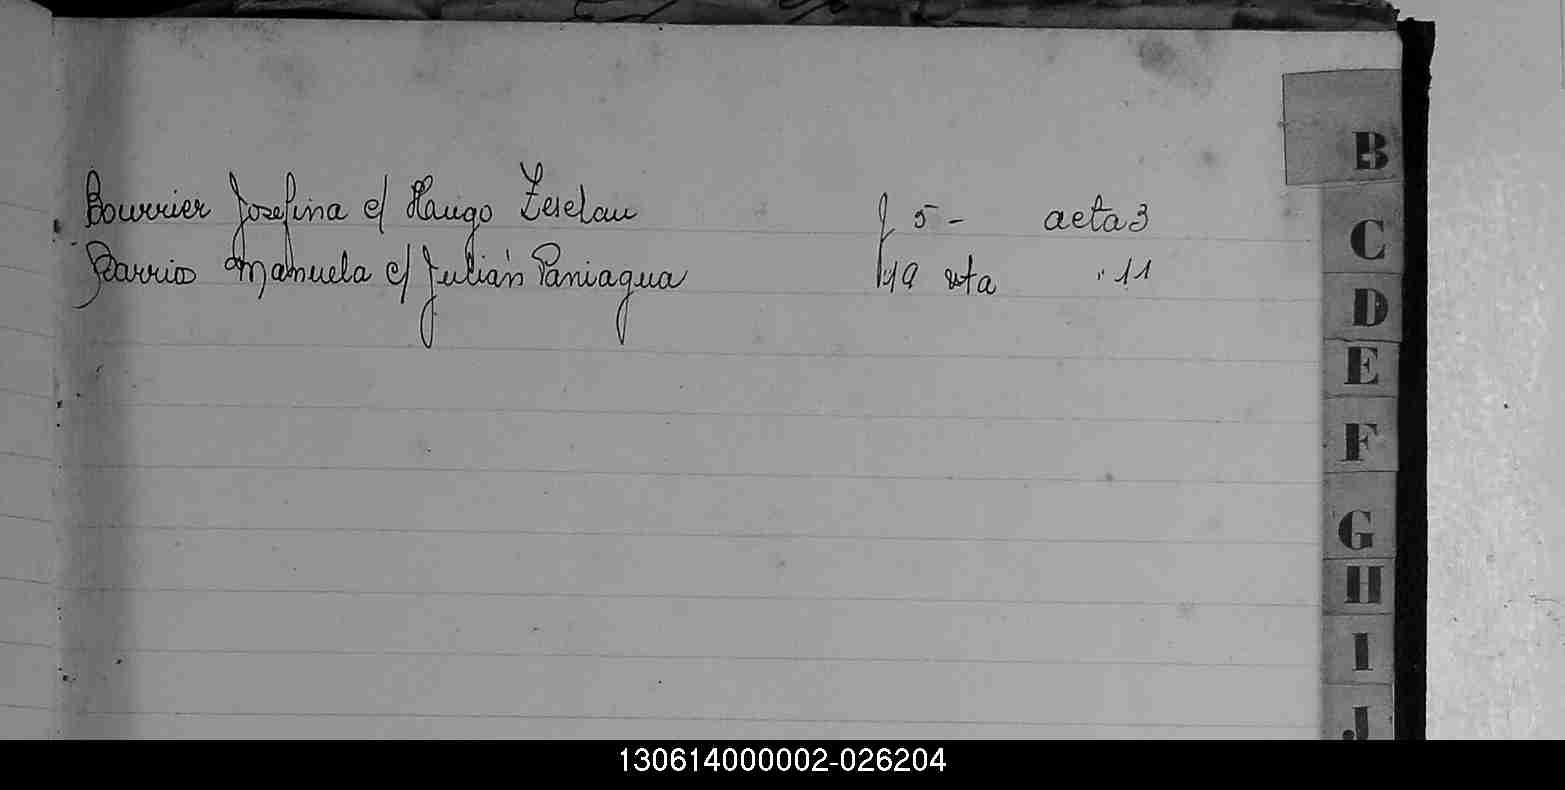 B
Bourrier Josefina c/ Haugo Zeselau f 5 - acta 3
C
Barrio Manuela c/ Julián Paniagua f 19 vta " 11
D
E
F
G
H
I
J
130614000002-026204